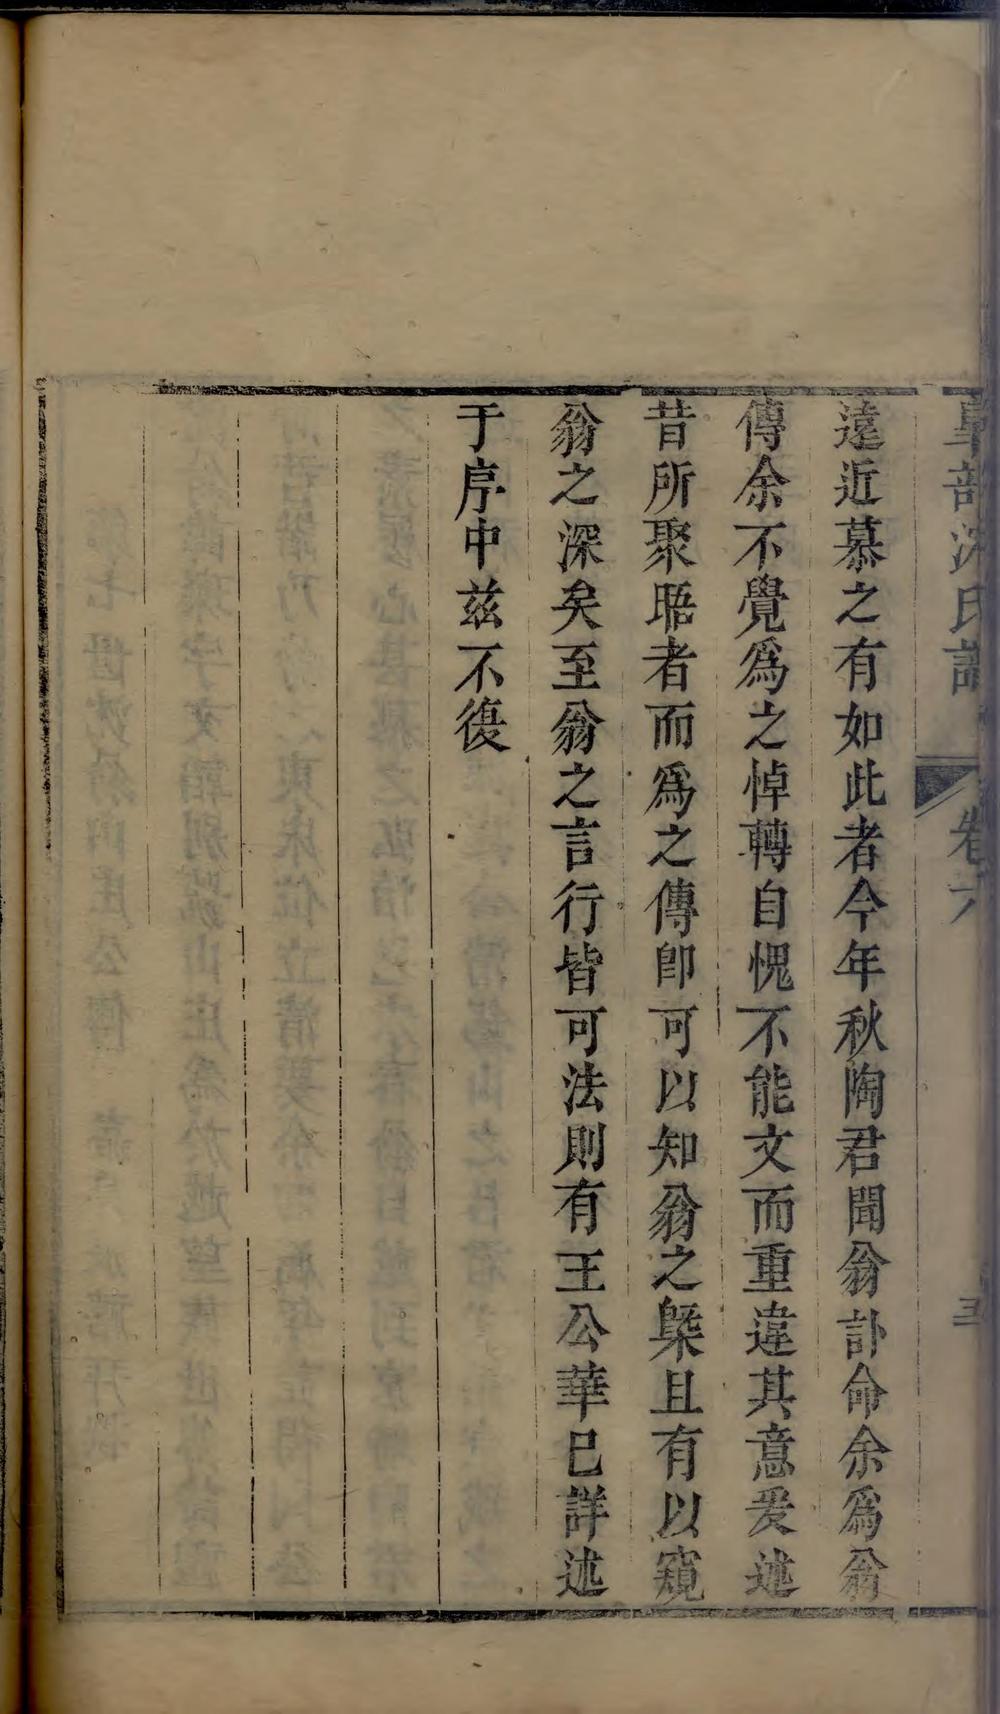 阜部沈氏譜 卷六 五
遠近慕之有如此者今年秋陶君聞翁訃命余爲翁
傳余不覺爲之悼轉自愧不能文而重違其意爰述
昔所聚晤者而爲之傳卽可以知翁之槩且有以窺
翁之深矣至翁之言行皆可法則有王公華已詳述
于序中兹不復